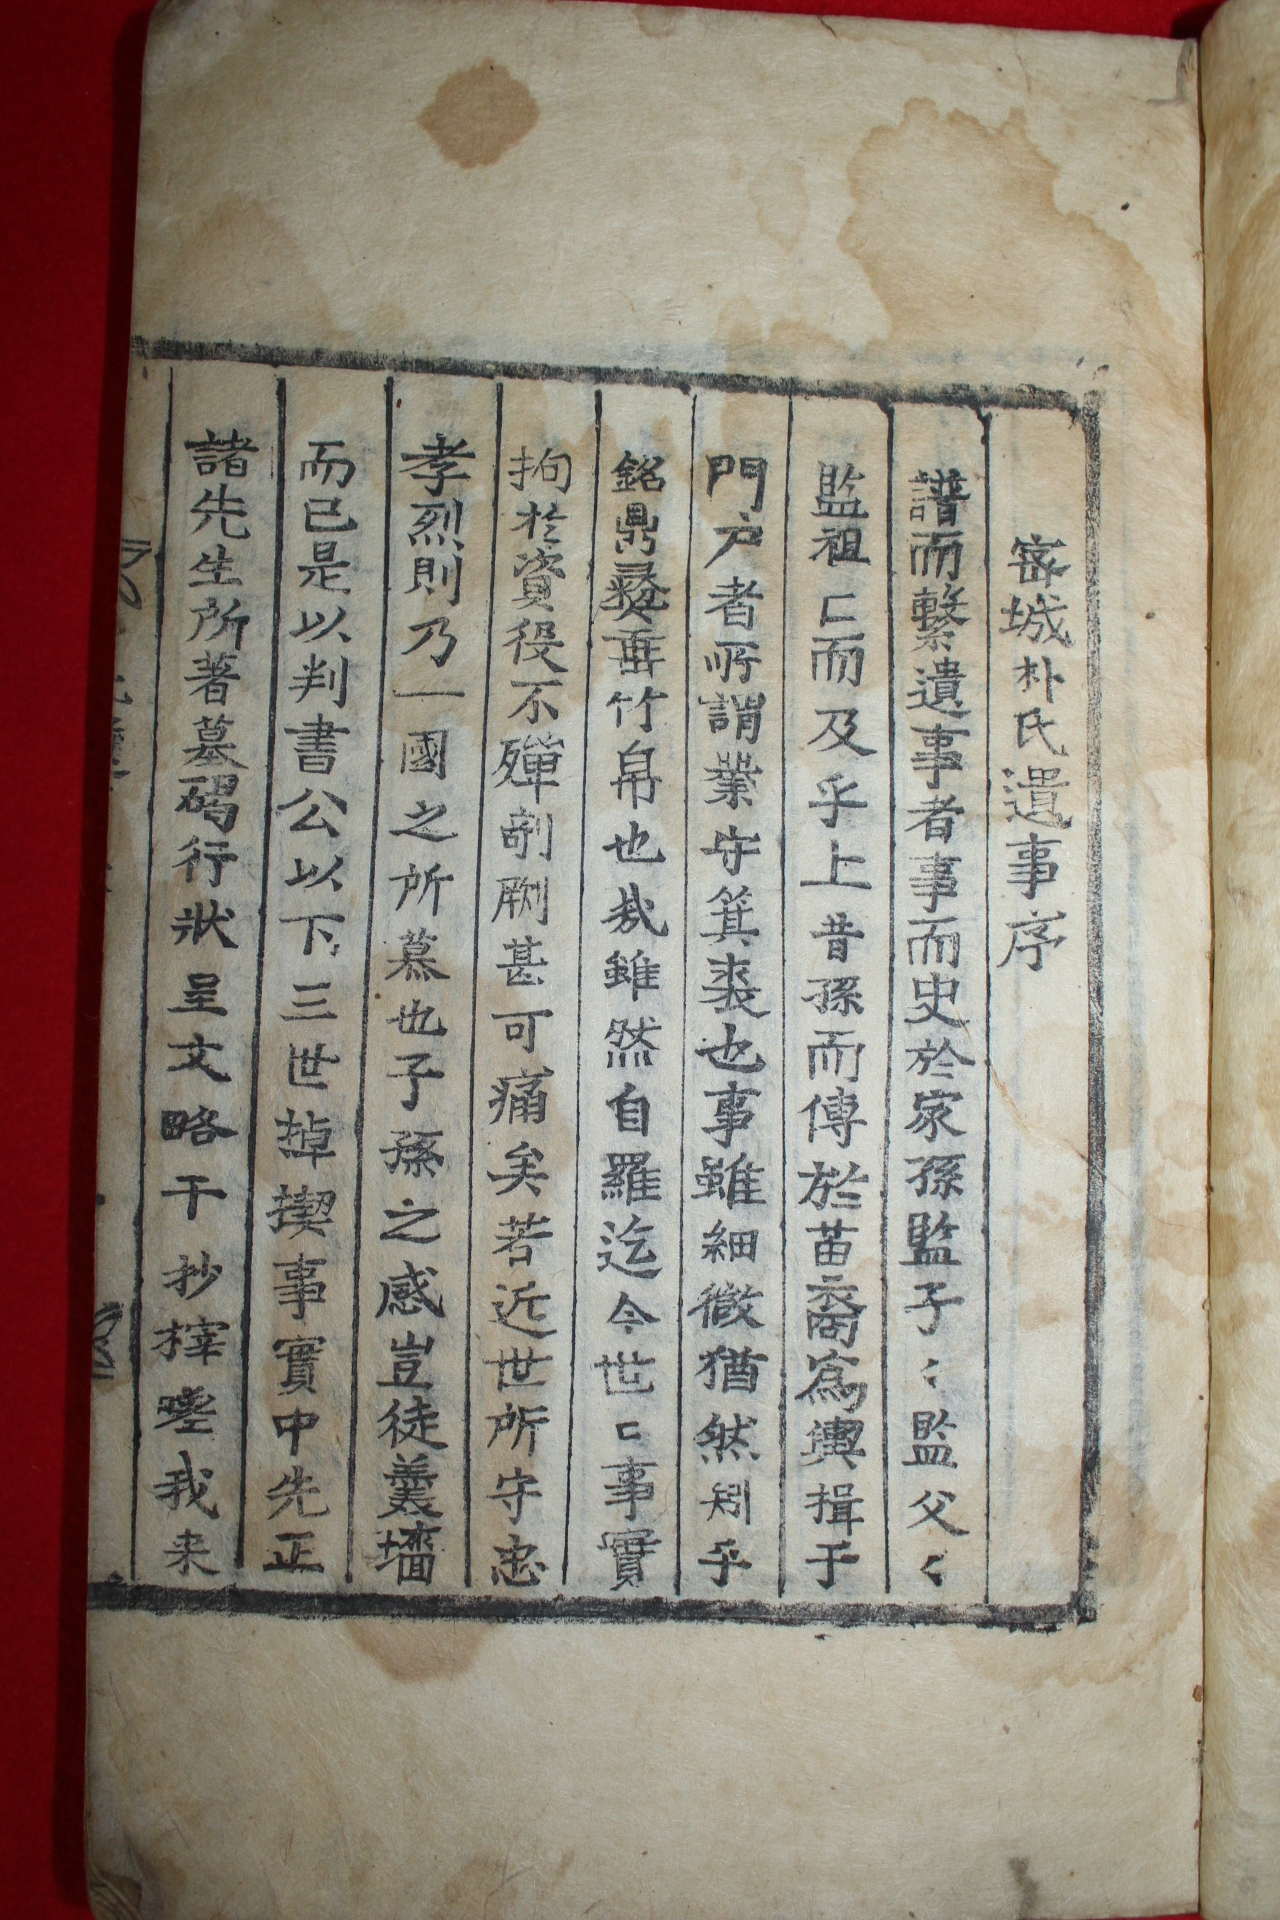 密城朴氏遺事序
譜而繫遺事者事而史於家孫監子〻監父〻
監祖〻而及乎上昔孫而傳於苗裔爲輿揖于
門户者所謂業守箕裘也事雖細微猶然矧乎
銘鼎彛垂竹帛也㦲雖然自羅迄今世〻事實
拘於資役不殫剞劂甚可痛矣若近世所守忠
孝烈則乃一國之所慕也子孫之感豈徒羹墻
而已是以判書公以下三世掉揳事實中先正
諸先生所著墓碣行狀呈文略干抄梓噫我来